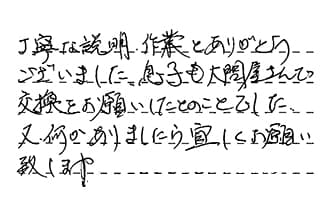 丁寧な説明、作業とありがとう
ございました。息子も大問屋さんで
交換をお願いしたとのことでした。
又、何かありましたら宜しくお願い
致します。